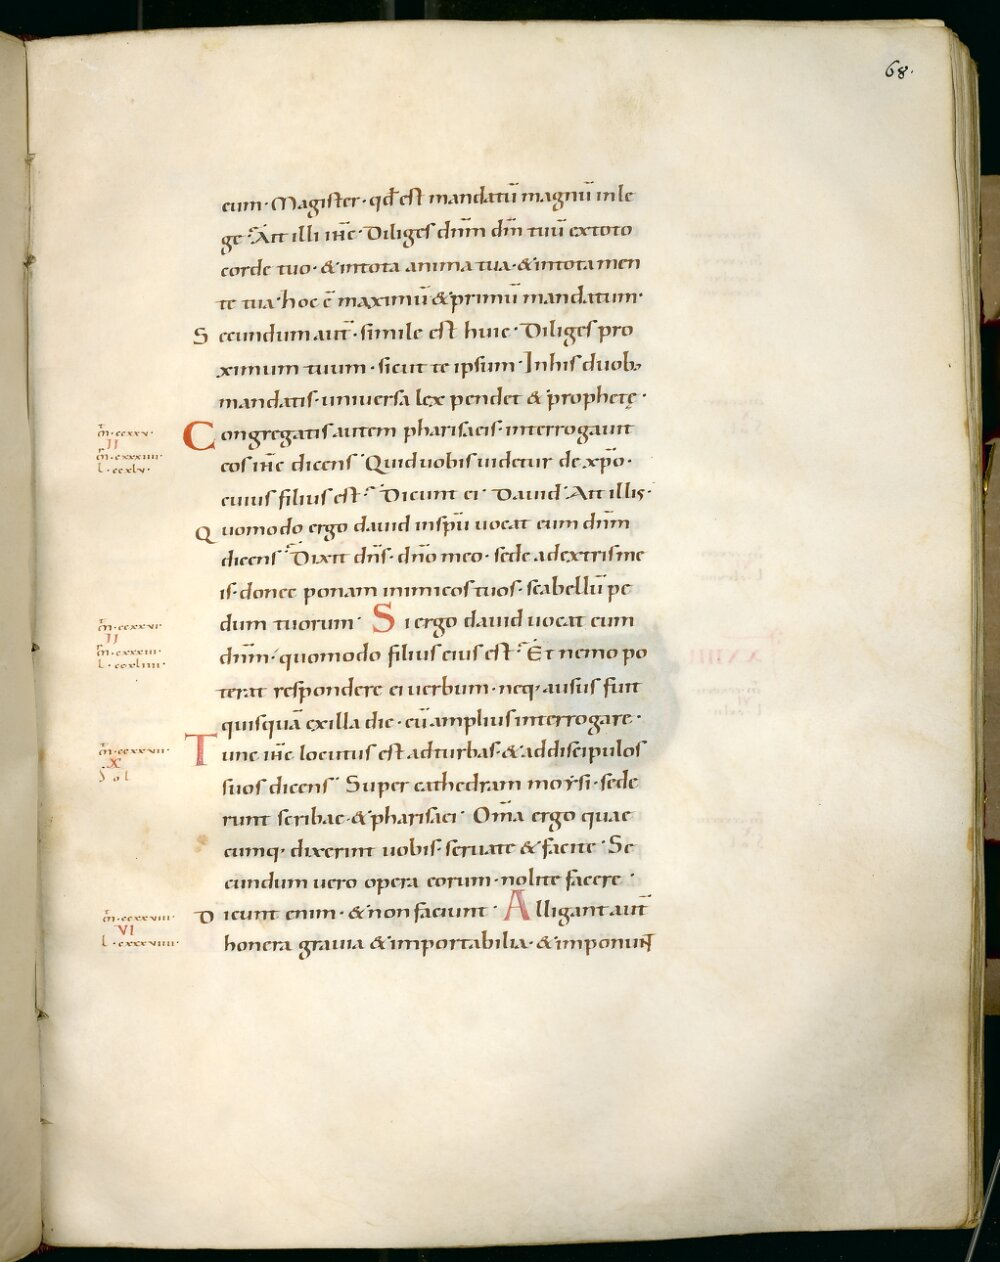 68.
eum· Magister· qđ est mandatū magnū in le
ge· Ait illi iħc· Diliges dnm̄ dm̄ tuū ex toto
corde tuo· & in tota anima tua· & in tota men
te tua· hoc ē maximū & primū mandatum·
Secundum aut̄· simile est huic· Diliges pro
ximum tuum· sicut te ipsum· In his duob;
mandatis· universa lex pendet & prophetę·
m̄·ccxxv·
II
m̄·cxxxiiii·
l·ccxlv·
Congregatis autem pharisaeis· interrogauit
eos iħc dicens· Quid uobis uidetur de xp̄o·
cuius filius est· Dicunt ei· Dauid· Ait illis·
Quomodo ergo dauid in spū uocat eum dnm̄
dicens· Dixit dn̄s· dn̄o meo· sede a dextris me
is· donec ponam inimicos tuos· scabellū pe
m̄·ccxxvi·
II
m̄·cxxxiii·
l·ccxliiii·
dum tuorum· Si ergo dauid uocat eum
dnm̄· quomodo filius eius est· Et nemo po
terat respondere ei uerbum· neq· ausus fuit
quisquā ex illa die· eū amplius interrogare·
m̄·ccxxvii·
X
Sol
Tunc iħc locutus est ad turbas· & ad discipulos
suos dicens· Super cathedram moysi· sede
runt scribae· & pharisaei· Om̄a ergo quae
cumq· dixerint uobis· seruate & facite· Se
cundum uero opera eorum· nolite facere·
m̄·ccxxviii·
VI
l·cxxxviiii·
Dicunt enim· & non faciunt· Alligant aut̄
honera grauia & importabilia· & imponunt